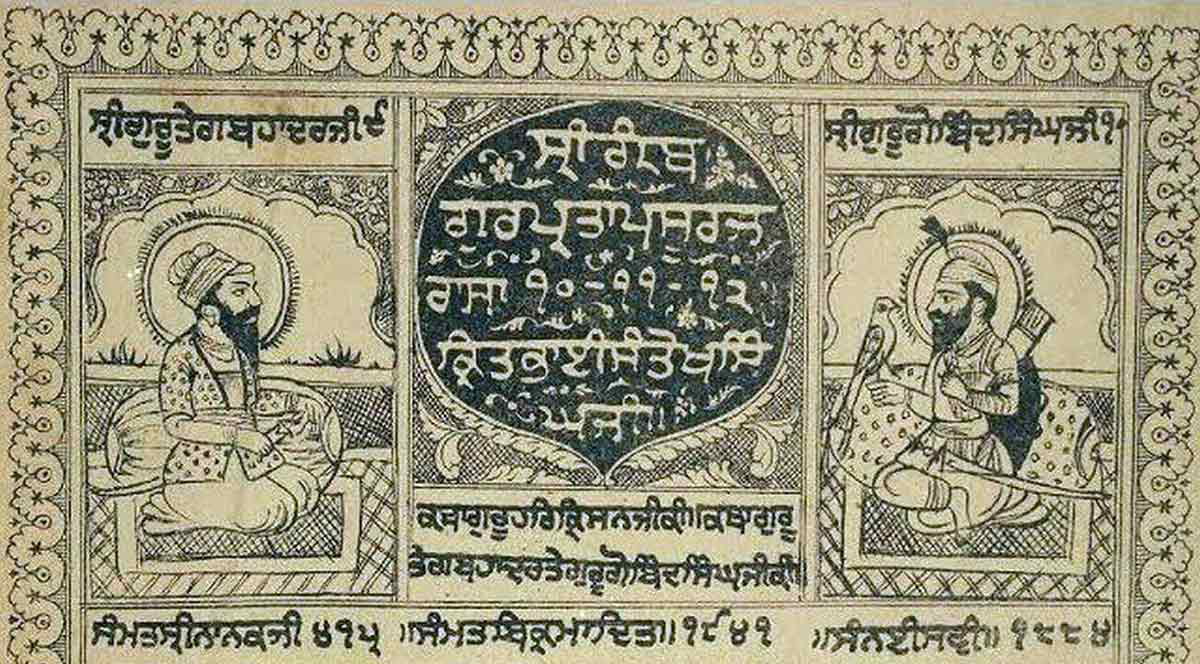 ਸ੍ਰੀ ਗੁਰੂ ਤੇਗ ਬਹਾਦਰ ਜੀ ੯
ਸ੍ਰੀ ਗੁਰੂ ਗੋਬਿੰਦ ਸਿੰਘ ਜੀ ੧੦
ਸ੍ਰੀ
ਗੁਰ ਪ੍ਰਤਾਪ ਸੂਰਜ
ਰਾਸਾਂ ੧੦-੧੧-੧੨
ਕ੍ਰਿਤ ਭਾਈ ਸੰਤੋਖ ਸਿੰ
ਘ ਜੀ॥
ਕਥਾ ਗੁਰੂ ਹਰਿ ਕ੍ਰਿਸਨ ਜੀ ਕੀ॥ ਕਥਾ ਗੁਰੂ
ਤੇਗ ਬਹਾਦਰ ਤੇ ਗੁਰੂ ਗੋਬਿੰਦ ਸਿੰਘ ਜੀ ਕੀ॥
ਸੰਮਤ ਸ੍ਰੀ ਨਾਨਕ ਜੀ ੪੧੫ ॥ਸੰਮਤ ਬਿਕ੍ਰਮਾਦਿਤ॥ ੧੯੪੧ ॥ਸੰਨ ਈਸਵੀ॥ ੧੮੮੪